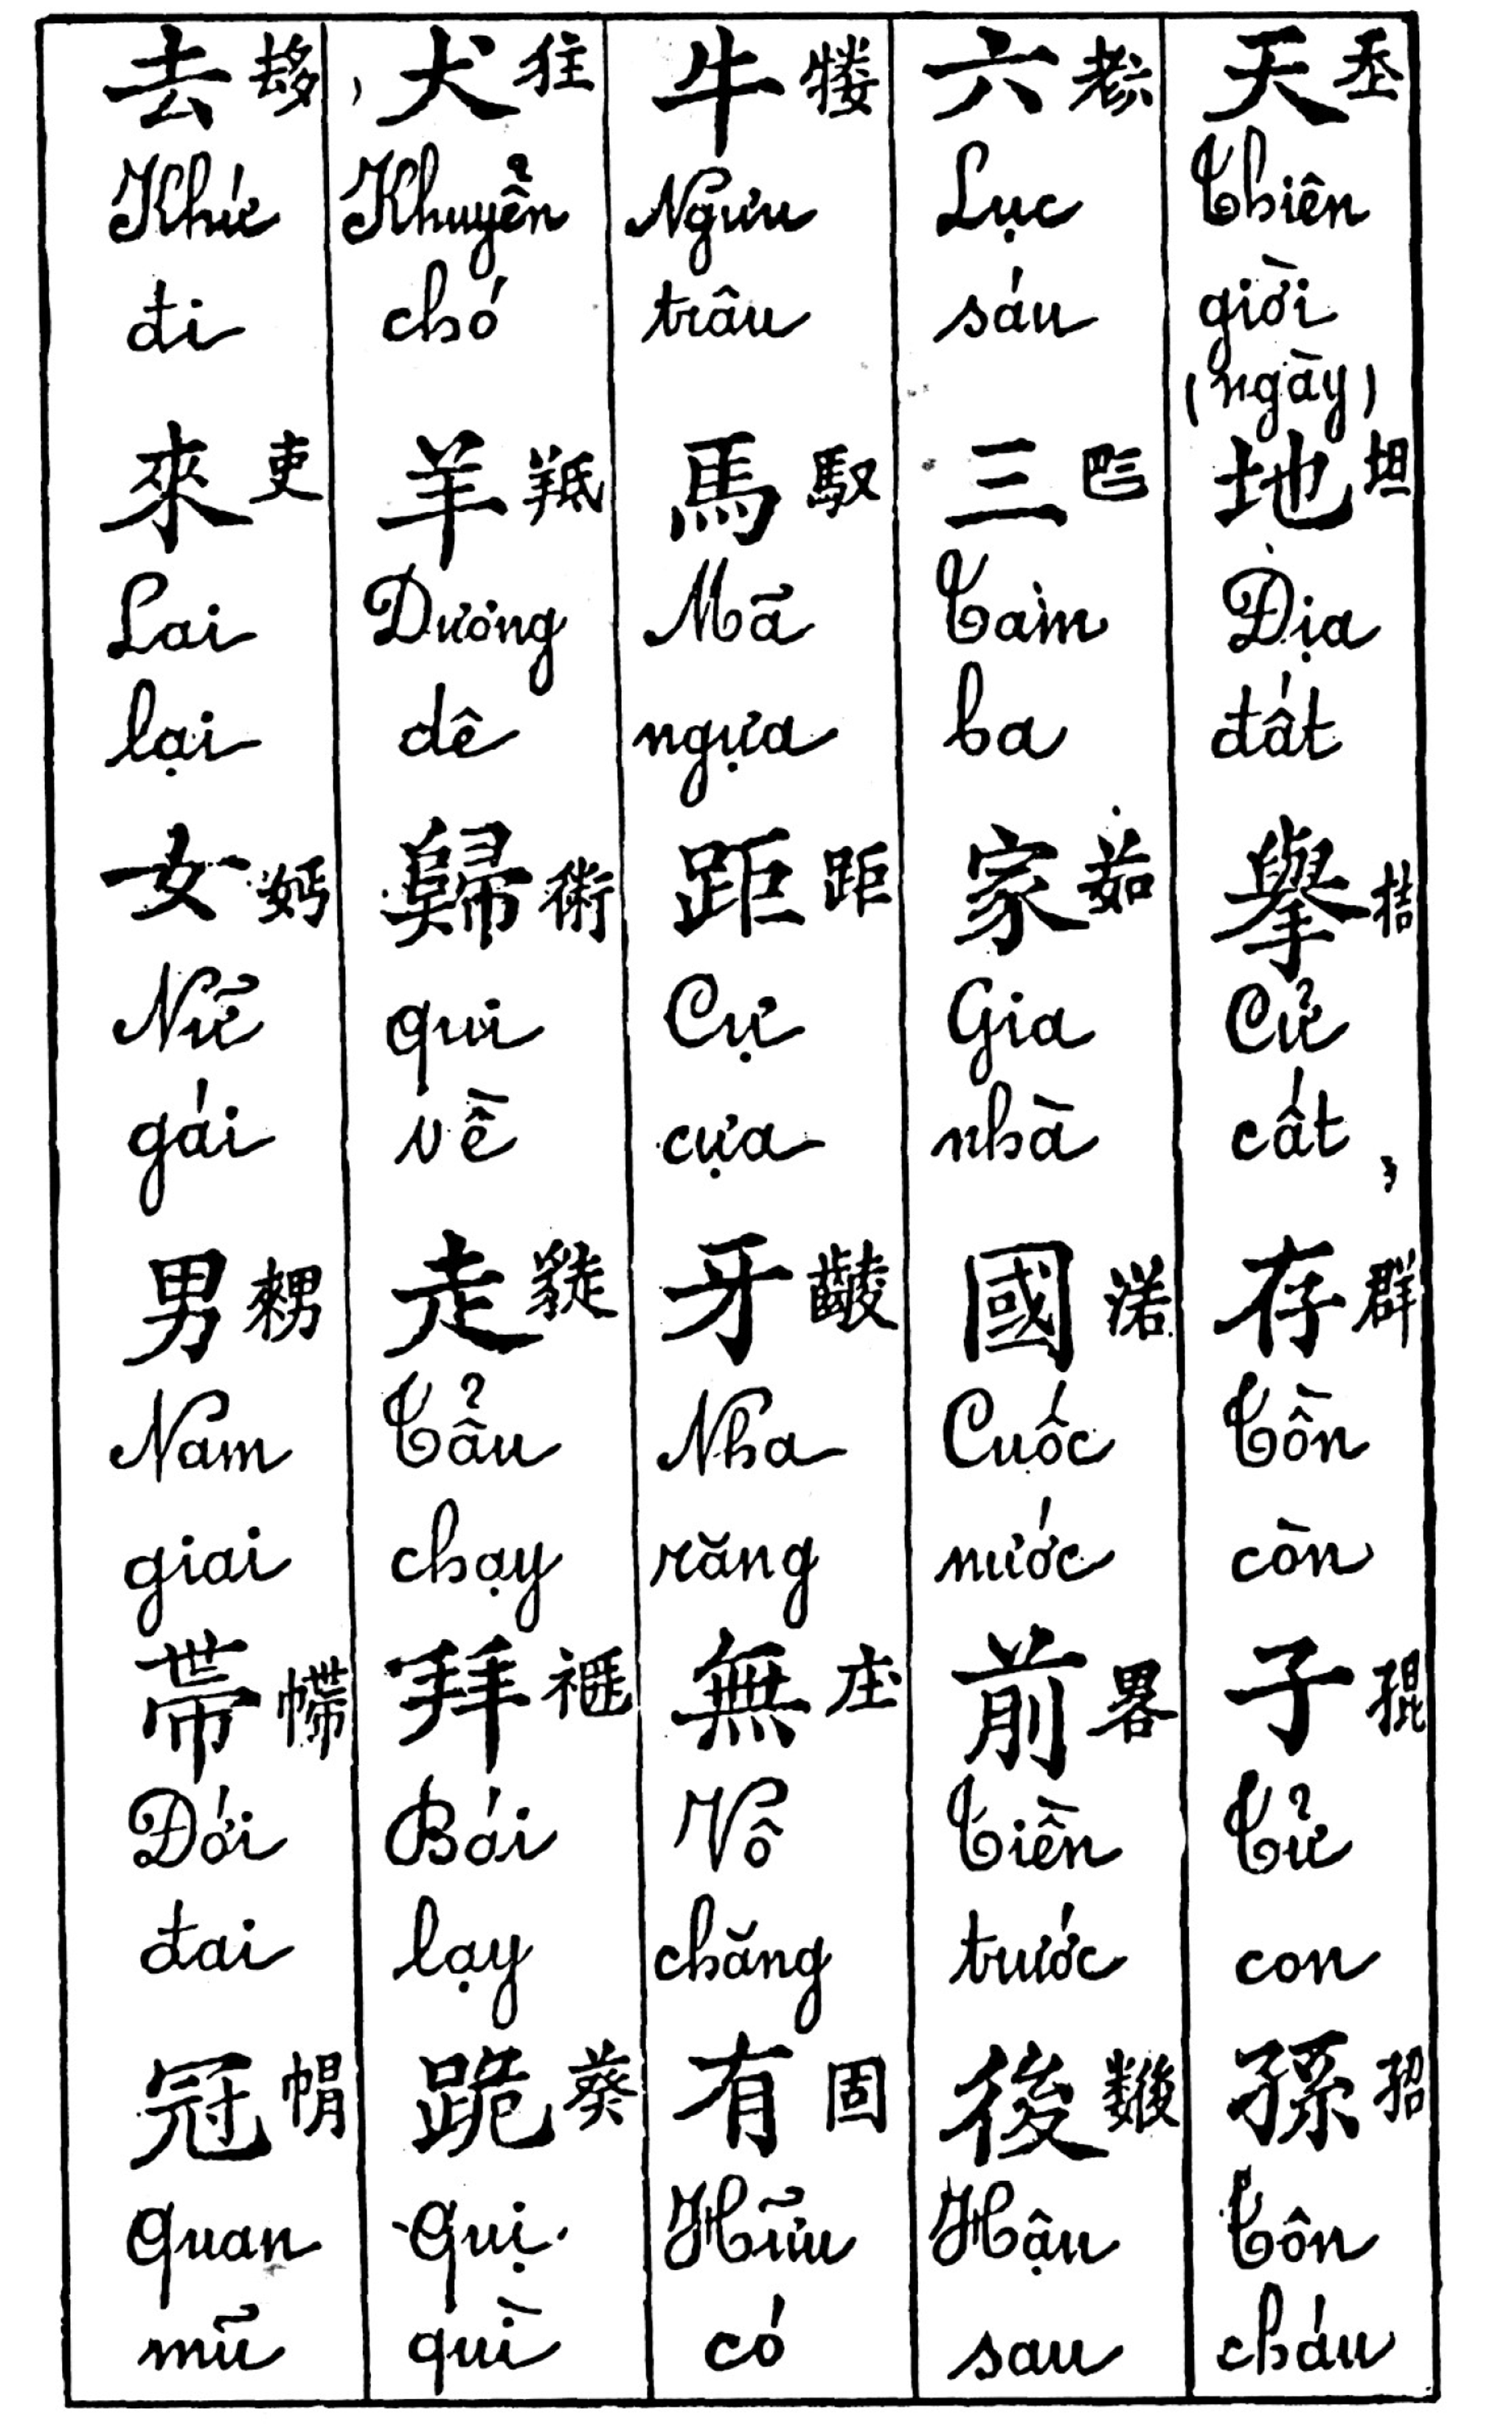 天 𡗶
Thiên
giời
(ngày)
地 坦
Địa
đất
擧 拮
Cử
cất,
存 群
Tồn
còn
子 𡥵
Tử
con
孫 𡥙
Tôn
cháu
六 𦒹
Lục
sáu
三 𠀧
Tam
ba
家 茹
Gia
nhà
國 渃
Cuốc
nước
前 畧
Tiền
trước
後
Hậu
sau
牛 𤛠
Ngưu
trâu
馬 馭
Mã
ngựa
距 距
Cự
cựa
牙 𪘵
Nha
răng
無 庄
Vô
chăng
有 固
Hữu
có
犬 㹥
Khuyển
chó
羊 羝
Dương
dê
歸 術
qui
về
走
Tẩu
chạy
拜
Bái
lạy
跪 葵
Quị
quì
去 𠫾
Khứ
đi
來 吏
Lai
lại
女 𡛔
Nữ
gái
男 𤳆
Nam
giai
帶
Đới
đai
冠
Quan
mũ